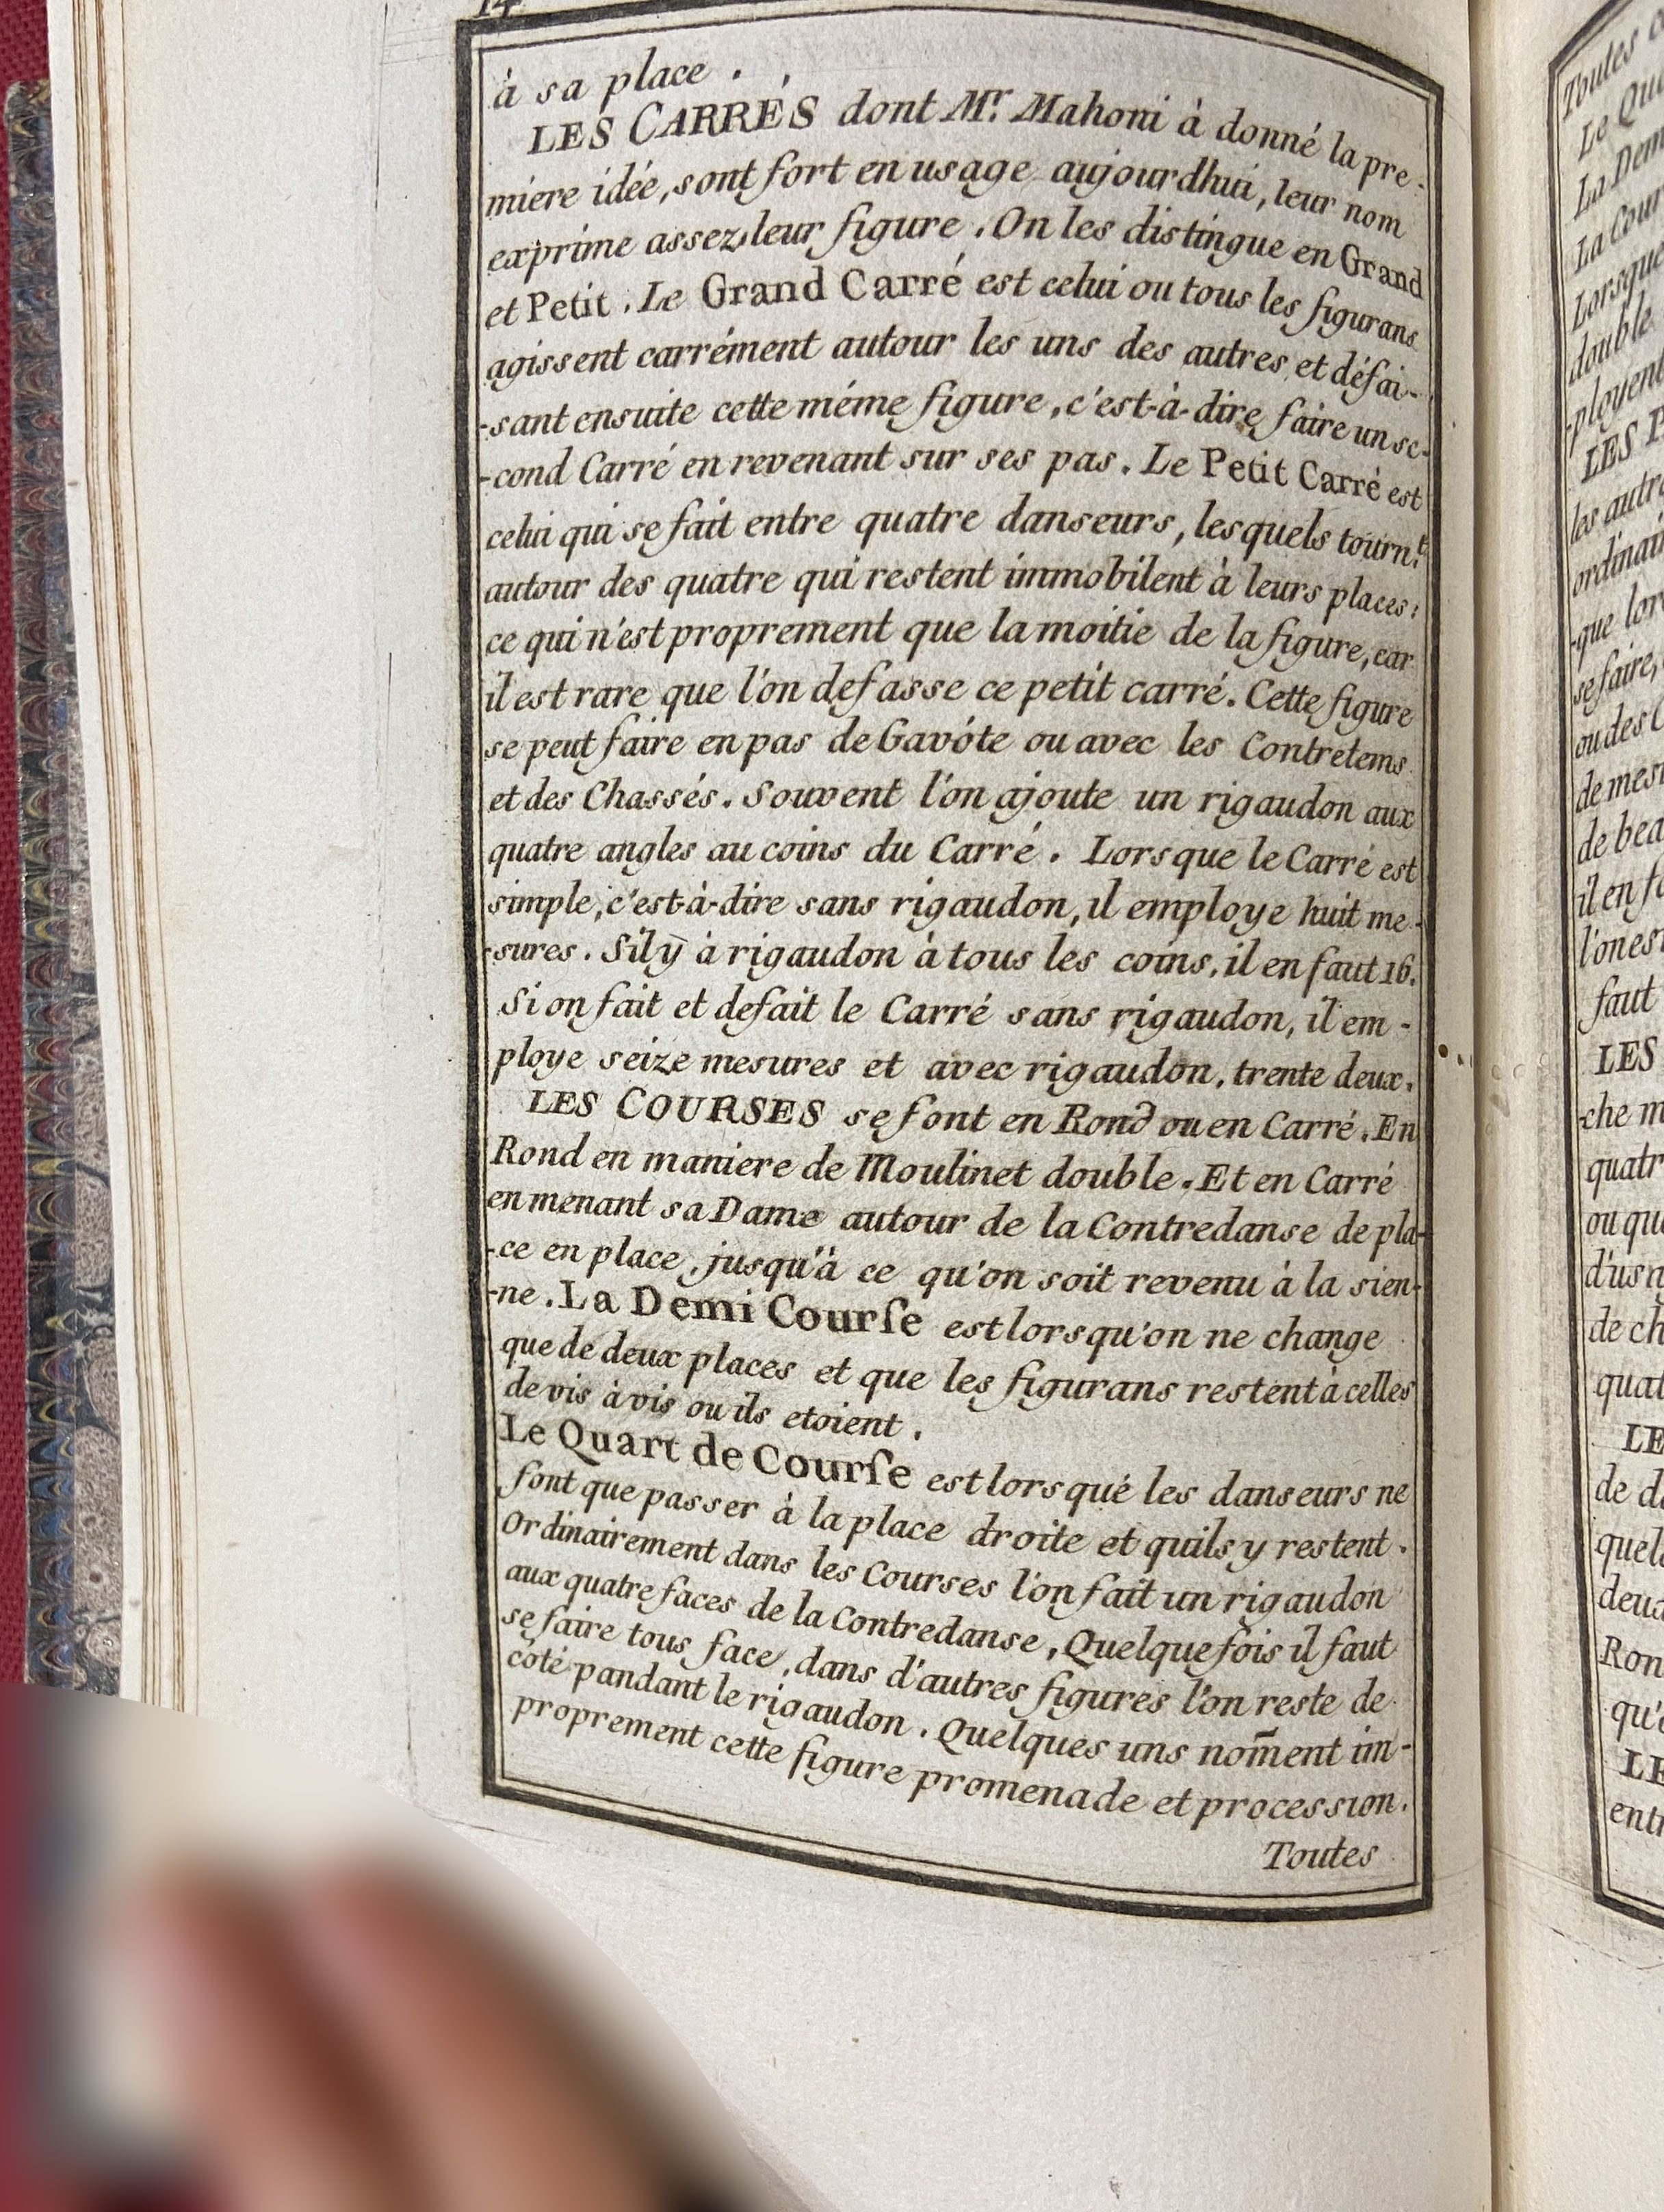 14
à sa place .
LES CARRÉS dont Mr. Mahoni à donné la pre-
miere idée, sont fort en usage aujourdhui, leur nom
exprime assez leur figure . On les distingue en Grand
et Petit . Le Grand Carré est celui ou tous les figurans
agissent carrément autour les uns des autres et défai-
-sant ensuite cette méme figure, c'est-à-dire faire un se-
-cond Carré en revenant sur ses pas . Le Petit Carré est
celui qui se fait entre quatre danseurs, lesquels tournt.
autour des quatre qui restent immobilent à leurs places:
ce qui n'est proprement que la moitie de la figure, car
il est rare que l'on defasse ce petit carré. Cette figure
se peut faire en pas de Gavóte ou avec les Contretems
et des Chassés. Souvent l'on ajoute un rigaudon aux
quatre angles au coins du Carré . Lorsque le Carré est
simple, c'est-à-dire sans rigaudon, il employe huit me-
-sures . S'il ÿ à rigaudon à tous les coins, il en faut 16.
Si on fait et defait le Carré sans rigaudon, il em-
ploye seize mesures et avec rigaudon, trente deux.
LES COURSES se font en Rond ou en Carré. En
Rond en maniere de Moulinet double. Et en Carré
en menant sa Dame autour de la Contredanse de pla-
-ce en place, jusqu'à ce qu'on soit revenu à la sien-
-ne . La Demi Courſe est lorsqu'on ne change
que de deux places et que les figurans restent à celles
de vis à vis ou ils etoient .
Le Quart de Courſe est lorsqué les danseurs ne
font que passer à la place droite et quils y restent .
Ordinairement dans les Courses l'on fait un rigaudon
aux quatre faces de la Contredanse, Quelque fois il faut
se faire tous face, dans d'autres figures l'on reste de
coté pandant le rigaudon . Quelques uns nom̄ent im-
proprement cette figure promenade et procession.
Toutes
Toutes
Le
La
La Cour
Lorsque
double
ployent
LES
les autr
que lor
se faire,
ou des
de
il en
faut
LES
-che
quatr
ou
de
LE
de
Ron
LE
entr